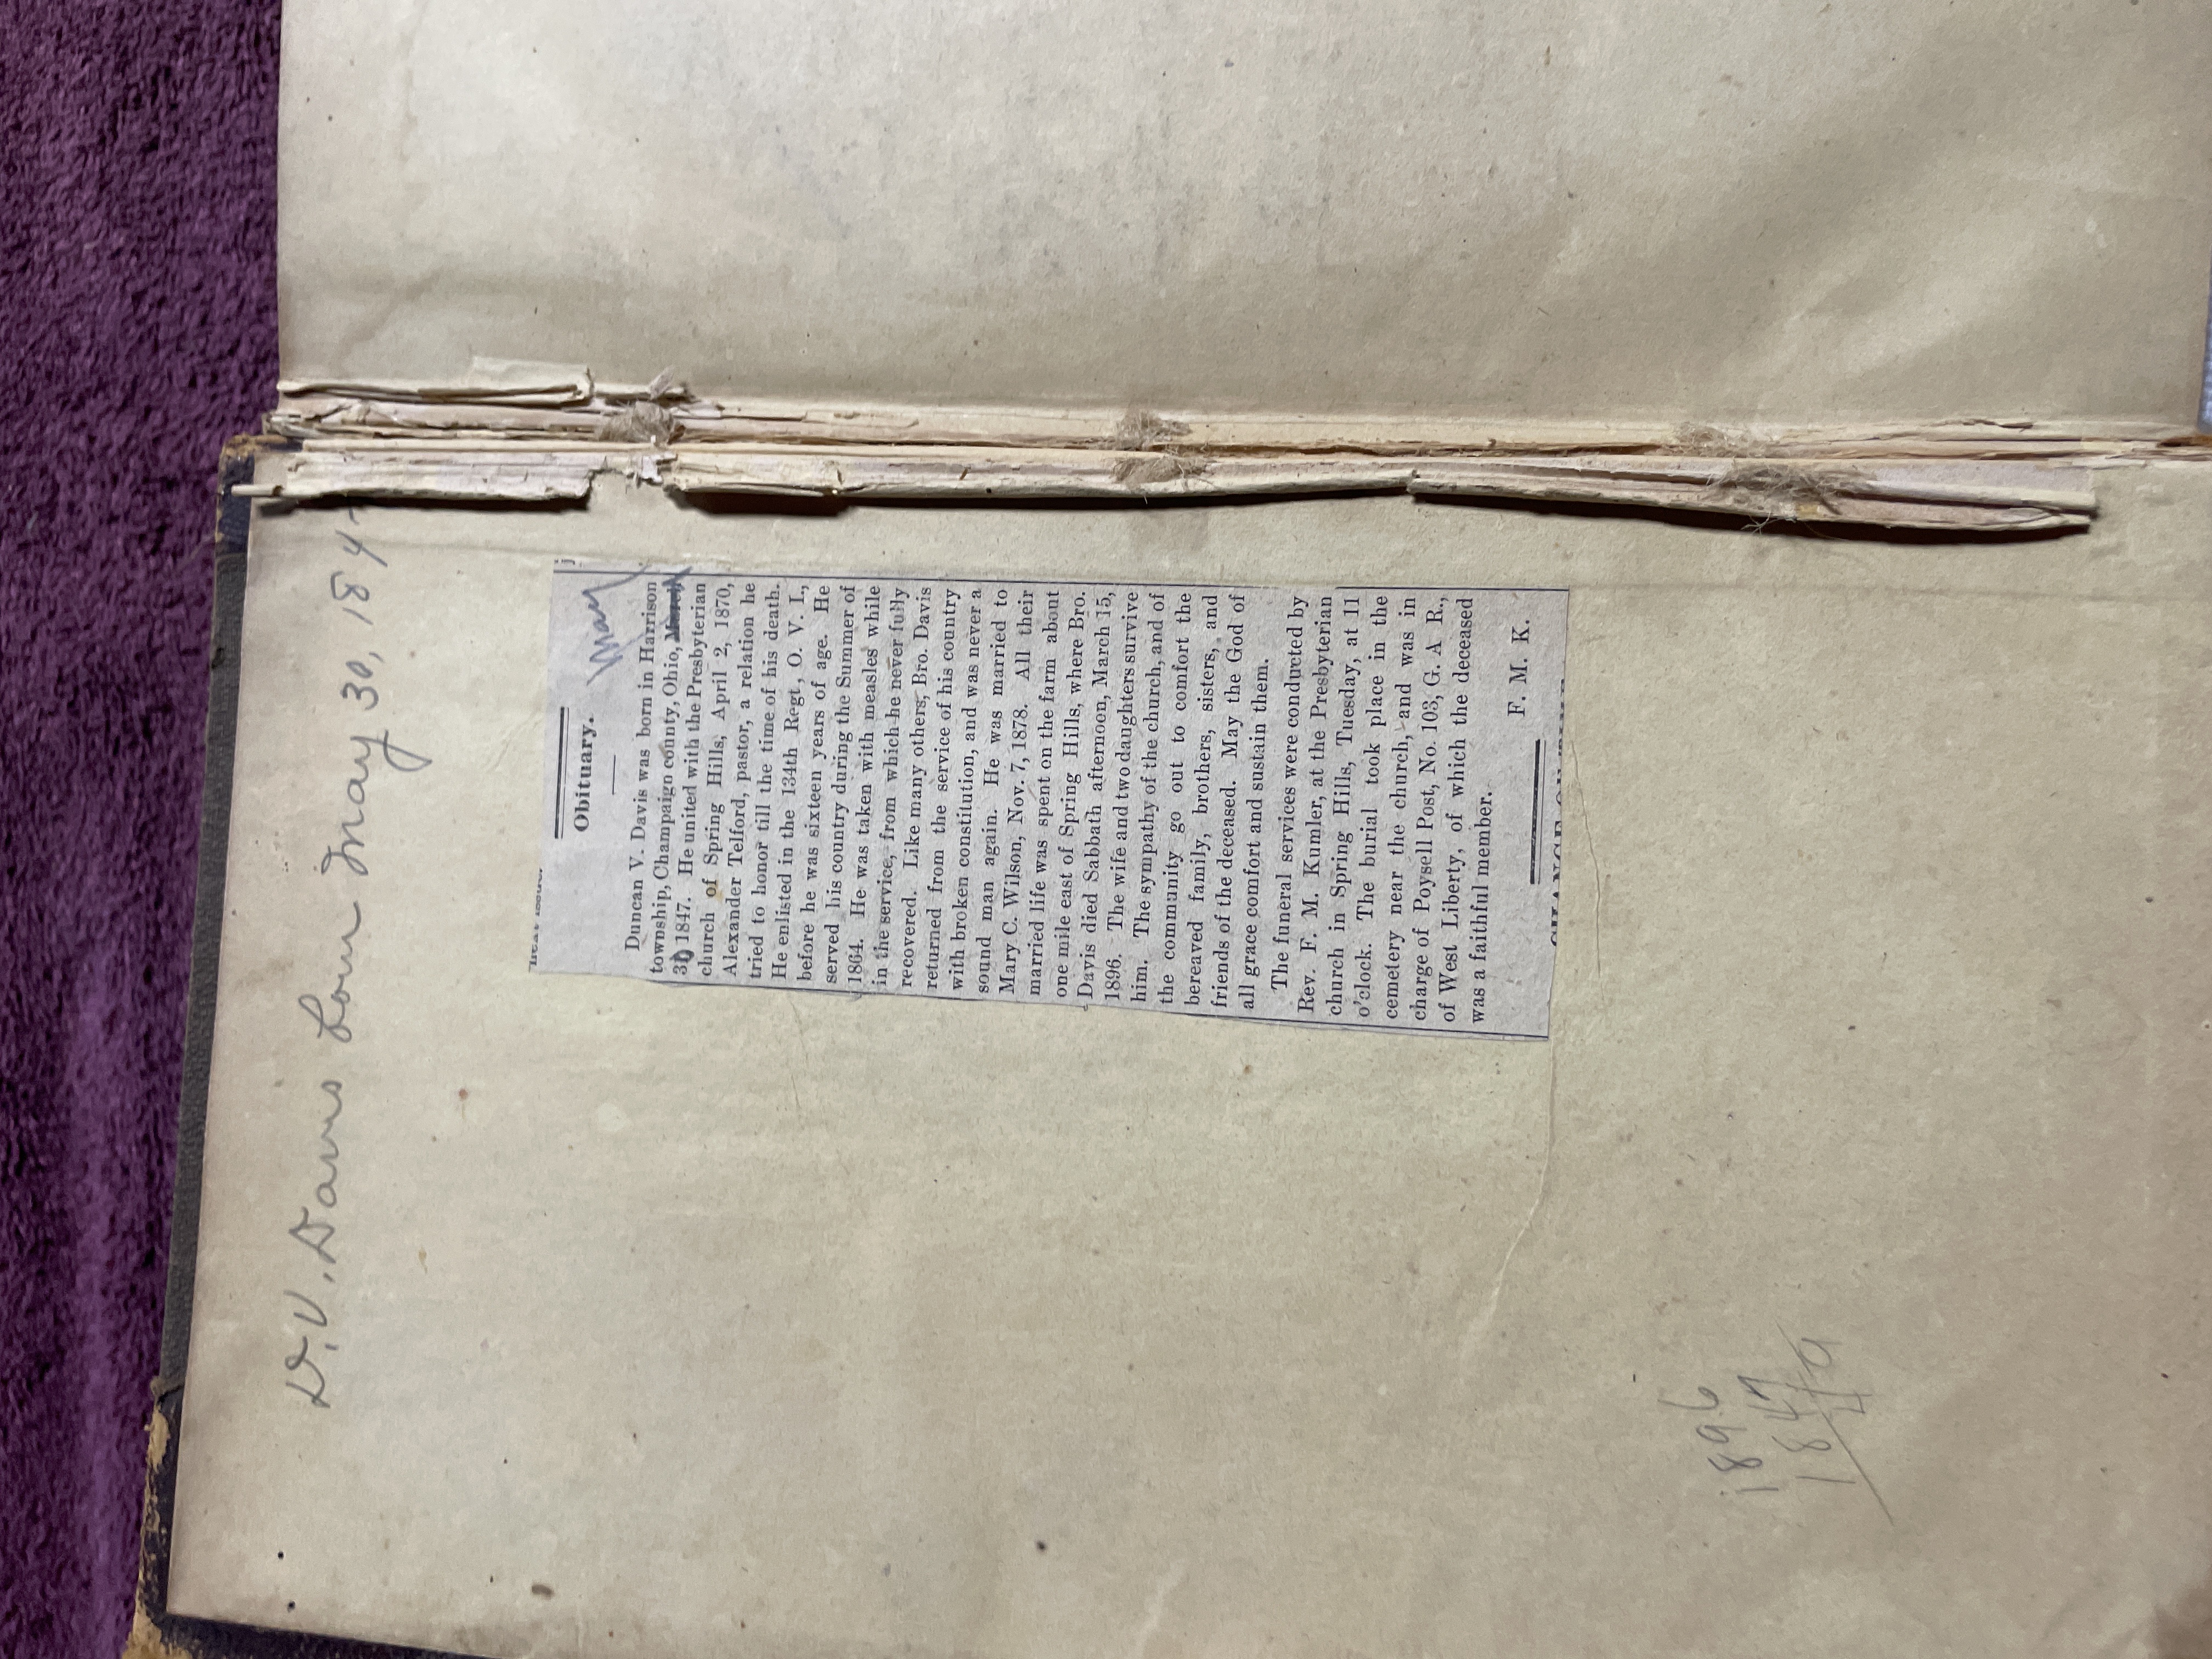 D.V. Davis Born May 30, 184
Obituary.
May
Duncan V. Davis was born in Harrison
township, Champaign county, Ohio, March
30 1847. He united with the Presbyterian
church of Spring Hills, April 2, 1870,
Alexander Telford, pastor, a relation he
tried to honor till the time of his death.
He enlisted in the 134th Regt, O. V. I.,
before he was sixteen years of age. He
served his country during the Summer of
1864. He was taken with measles while
in the service, from which he never fully
recovered. Like many others, Bro. Davis
returned from the service of his country
with broken constitution, and was never a
sound man again. He was married to
Mary C. Wilson, Nov. 7, 1878. All their
married life was spent on the farm about
one mile east of Spring Hills, where Bro.
Davis died Sabbath afternoon, March 15,
1896. The wife and two daughters survive
him. The sympathy of the church, and of
the community go out to comfort the
bereaved family, brothers, sisters, and
friends of the deceased. May the God of
all grace comfort and sustain them.
The funeral services were conducted by
Rev. F. M. Kumler, at the Presbyterian
church in Spring Hills, Tuesday, at 11
o'clock. The burial took place in the
cemetery near the church, and was in
charge of Poysell Post, No. 103, G. A R.,
of West Liberty, of which the deceased
was a faithful member.
F. M. K.
1896
1847
49